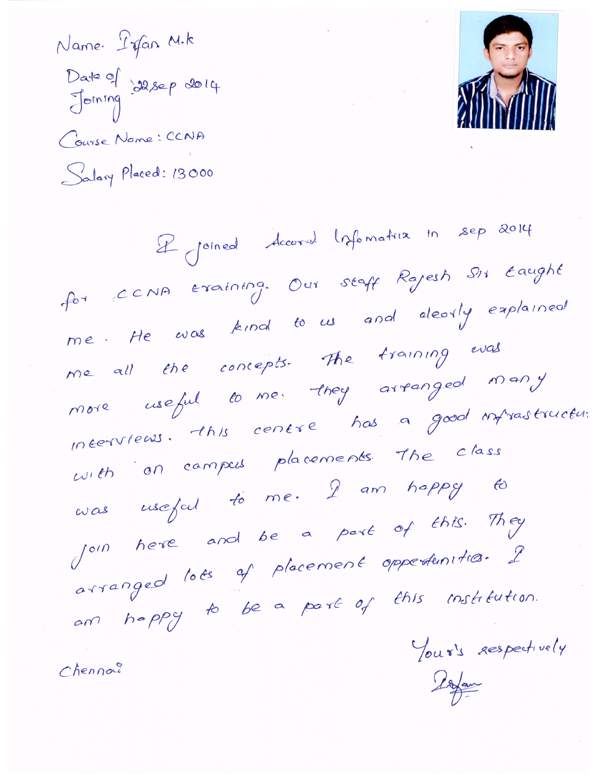 Name. Irfan M.K
Date of
Joining : 22 Sep 2014
Course Name: CCNA
Salary Placed: 13000
I joined Accord Infomatrix in sep 2014
for CCNA training. Our staff Rajesh Sir taught
me. He was kind to us and clearly explained
me all the concepts. The training was
more useful to me. They arranged many
interviews. This centre has a good infrastructu
with on campus placements The class
was useful to me. I am happy to
join here and be a part of this. They
arranged lots of placement oppertunities. I
am happy to be a part of this institution.
Your's respectively
Chennai
Irfan